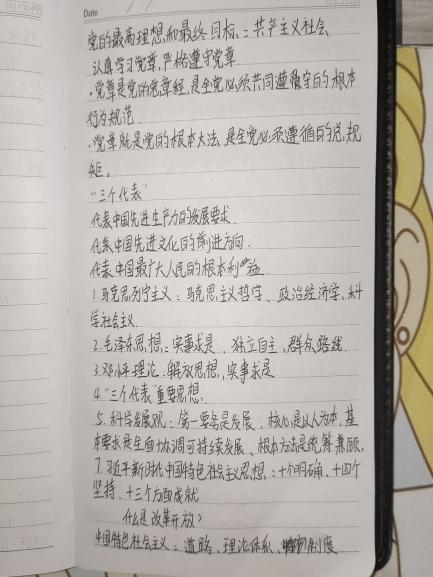 Date
党的最高理想和最终目标:共产主义社会
认真学习党章,严格遵守党章
·党章是党的党章程,是全党必须共同遵守的根本
行为规范
·党章就是党的根本大法,是全党必须遵循的总规
矩。
“三个代表”
代表中国先进生产力的发展要求
代表中国先进文化的前进方向
代表中国最广大人民的根本利益
1.马克思列宁主义:马克思主义哲学、政治经济学、科
学社会主义.
2.毛泽东思想:实事求是、独立自主、群众路线.
3.邓小平理论:解放思想,实事求是
4.“三个代表”重要思想.
5.科学发展观:第一要务是发展,核心是以人为本,基
本要求是全面协调可持续发展、根本方法是统筹兼顾.
7.习近平新时代中国特色社会主义思想:十个明确、十四个
坚持、十三个方面成就
什么是改革开放?
中国特色社会主义:道路、理论体系、制度